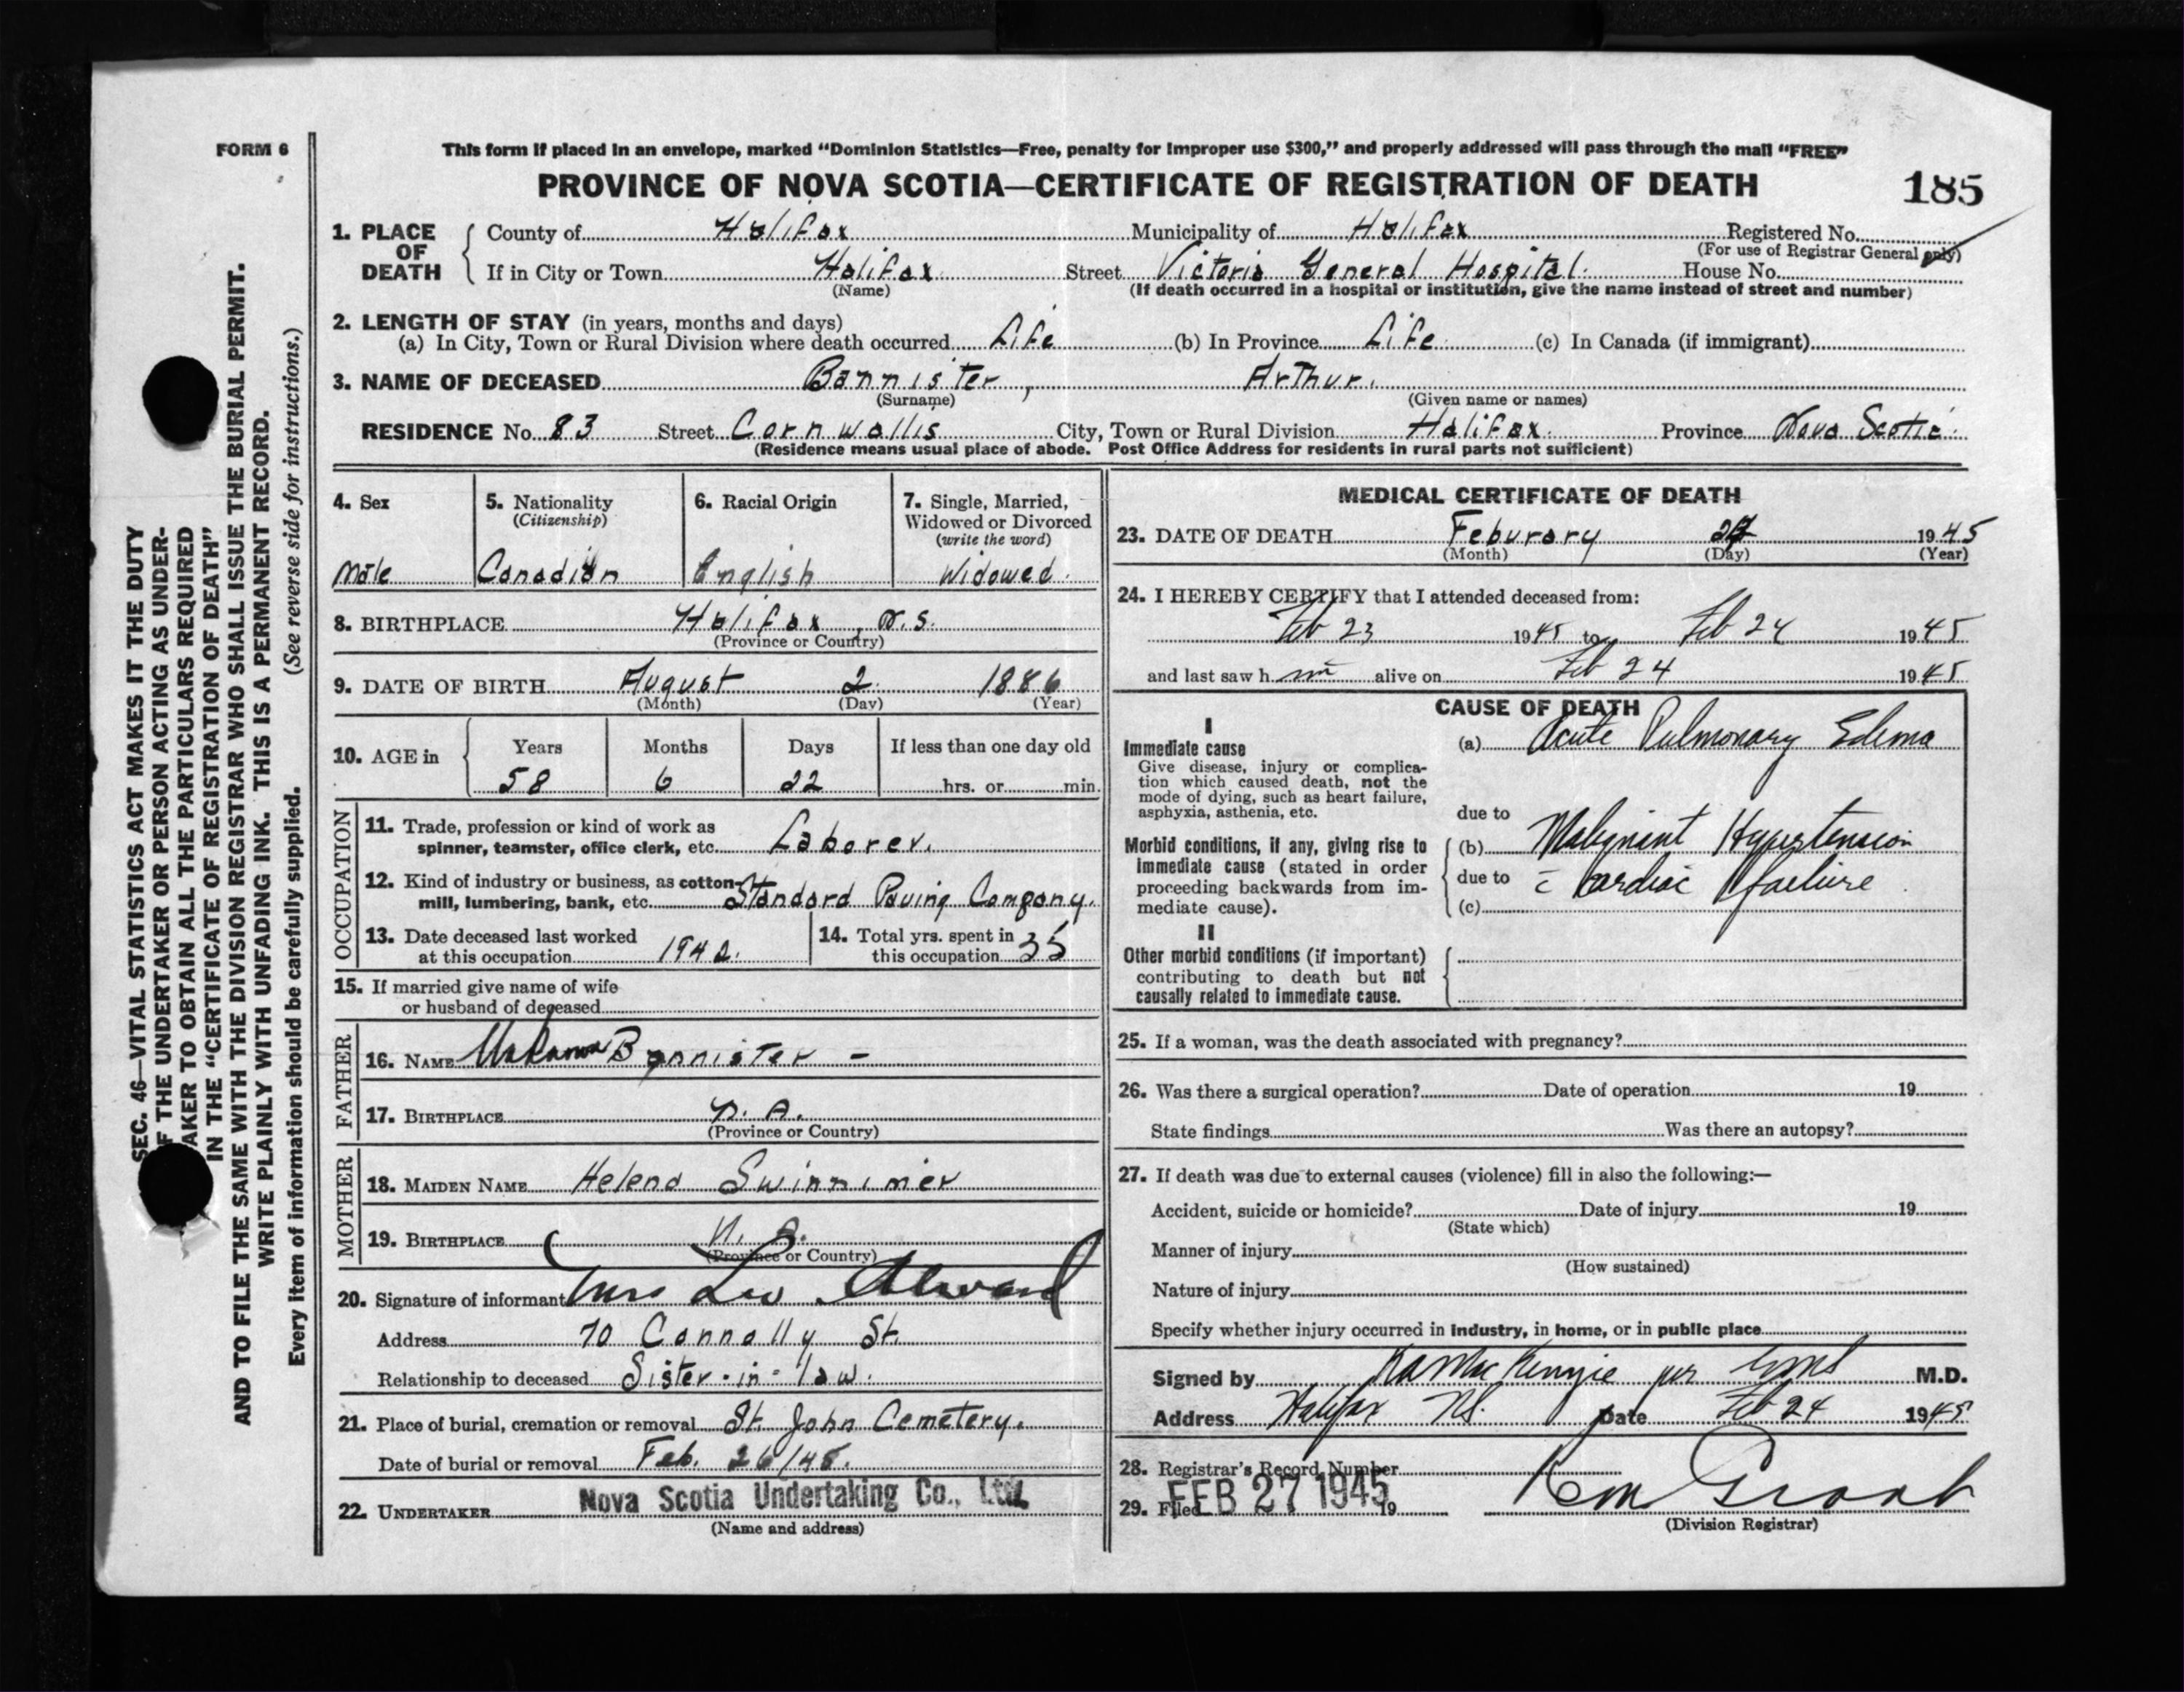 FORM 6
This form if placed in an envelope, marked “Dominion Statistics—Free, penalty for improper use $300,” and properly addressed will pass through the mail “FREE”
PROVINCE OF NOVA SCOTIA—CERTIFICATE OF REGISTRATION OF DEATH
185
1. PLACE OF DEATH
County of Halifax Municipality of Halifax Registered No.
(For use of Registrar General only)
If in City or Town Halifax Street Victoria General Hospital. House No.
(Name) (If death occurred in a hospital or institution, give the name instead of street and number)
2. LENGTH OF STAY (in years, months and days)
(a) In City, Town or Rural Division where death occurred Life (b) In Province Life (c) In Canada (if immigrant)
3. NAME OF DECEASED Bannister, Arthur.
(Surname) (Given name or names)
RESIDENCE No. 83 Street Cornwallis City, Town or Rural Division Halifax. Province Nova Scotia.
(Residence means usual place of abode. Post Office Address for residents in rural parts not sufficient)
4. Sex
Male
5. Nationality
(Citizenship)
Canadian
6. Racial Origin
English
7. Single, Married,
Widowed or Divorced
(write the word)
Widowed.
8. BIRTHPLACE Halifax, N.S.
(Province or Country)
9. DATE OF BIRTH August 2. 1886
(Month) (Day) (Year)
10. AGE in
Years Months Days If less than one day old
58 6 22 hrs. or min.
OCCUPATION
11. Trade, profession or kind of work as
spinner, teamster, office clerk, etc. Laborer.
12. Kind of industry or business, as cotton-
mill, lumbering, bank, etc. Standard Paving Company.
13. Date deceased last worked
at this occupation 1942.
14. Total yrs. spent in
this occupation 35
15. If married give name of wife
or husband of deceased
FATHER
16. NAME Unknown Bannister –
17. BIRTHPLACE N. A.
(Province or Country)
MOTHER
18. MAIDEN NAME Helena Swinnimer
19. BIRTHPLACE N. S.
(Province or Country)
20. Signature of informant Mrs Leo Alward
Address 70 Connolly St.
Relationship to deceased Sister-in-law.
21. Place of burial, cremation or removal St. John Cemetery.
Date of burial or removal Feb. 26/45.
22. UNDERTAKER Nova Scotia Undertaking Co., Ltd.
(Name and address)
MEDICAL CERTIFICATE OF DEATH
23. DATE OF DEATH Feburary 1945
(Month) (Day) (Year)
24. I HEREBY CERTIFY that I attended deceased from:
Feb 23 1945 to Feb 24 1945
and last saw h im alive on Feb 24 1945
CAUSE OF DEATH
I
Immediate cause
Give disease, injury or complica-
tion which caused death, not the
mode of dying, such as heart failure,
asphyxia, asthenia, etc.
(a) Acute Pulmonary Edema
due to
Morbid conditions, if any, giving rise to
immediate cause (stated in order
proceeding backwards from im-
mediate cause).
(b) Malignant Hypertension
due to c̄ Cardiac failure
(c)
II
Other morbid conditions (if important)
contributing to death but not
causally related to immediate cause.
25. If a woman, was the death associated with pregnancy?
26. Was there a surgical operation? Date of operation 19
State findings Was there an autopsy?
27. If death was due to external causes (violence) fill in also the following:—
Accident, suicide or homicide? Date of injury 19
(State which)
Manner of injury
(How sustained)
Nature of injury
Specify whether injury occurred in industry, in home, or in public place
Signed by MacKenzie per M.D.
Address Halifax NS. Date Feb 24 1945
28. Registrar's Record Number
29. Filed FEB 27 1945 19
Grant
(Division Registrar)
SEC. 46—VITAL STATISTICS ACT MAKES IT THE DUTY
OF THE UNDERTAKER OR PERSON ACTING AS UNDER-
TAKER TO OBTAIN ALL THE PARTICULARS REQUIRED
IN THE “CERTIFICATE OF REGISTRATION OF DEATH”
AND TO FILE THE SAME WITH THE DIVISION REGISTRAR WHO SHALL ISSUE THE BURIAL PERMIT.
WRITE PLAINLY WITH UNFADING INK. THIS IS A PERMANENT RECORD.
Every item of information should be carefully supplied. (See reverse side for instructions.)